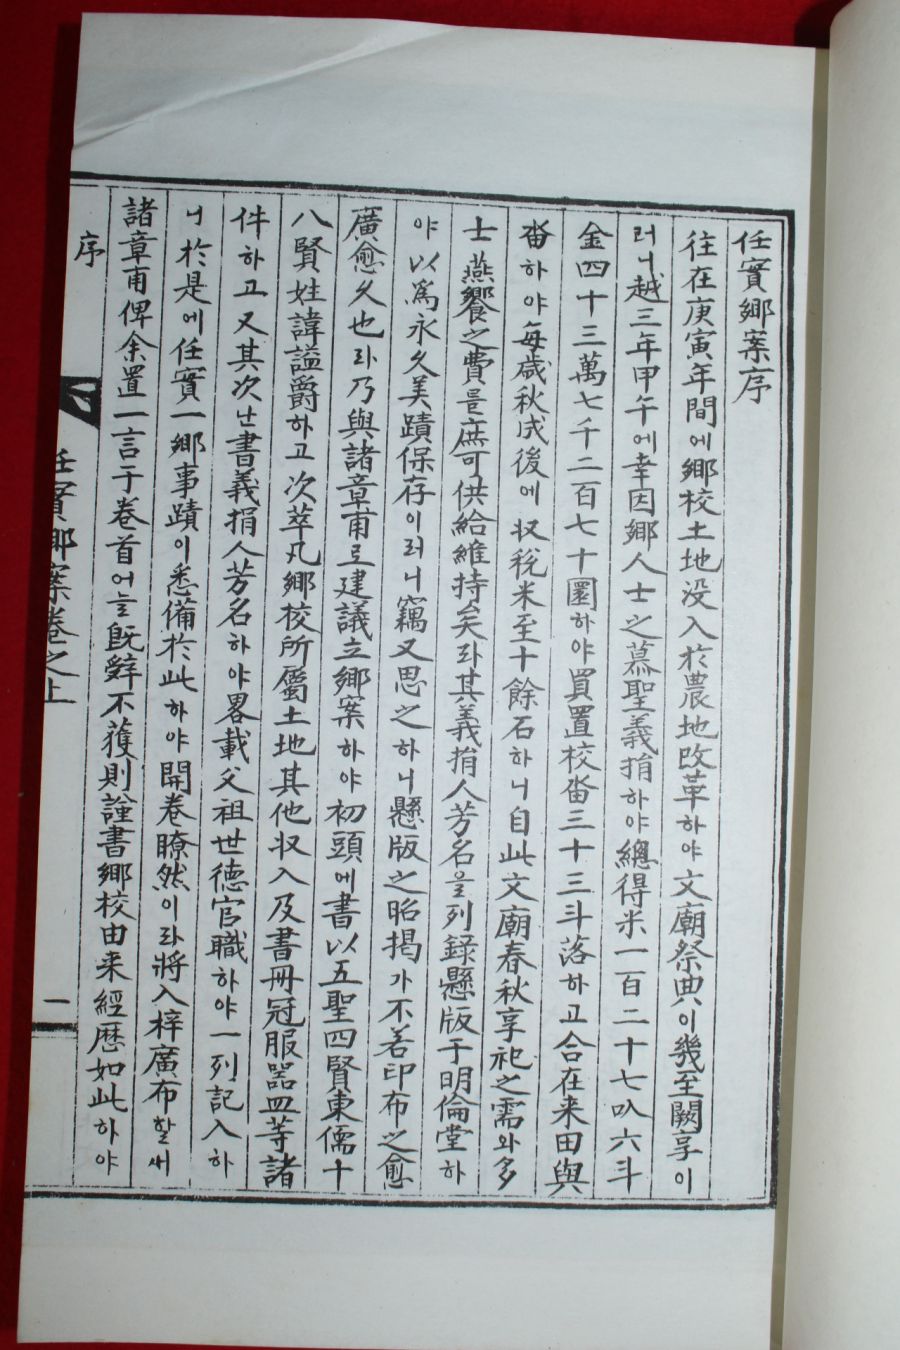 任實鄕案序
往在庚寅年間에鄕校土地没入於農地改革하야文廟祭典이幾至闕享이
러니越三年甲午에幸因鄕人士之慕聖義捐하야總得米一百二十七叺六斗
金四十三萬七千二百七十圜하야買置校畓三十三斗落하고合在来田與
畓하야每歲秋成後에収稅米至十餘石하니自此文廟春秋享祀之需와多
士燕饗之費를庶可供給維持矣라其義捐人芳名을列録懸版于明倫堂하
야以爲永久美蹟保存이러니竊又思之하니懸版之昭揭가不若印布之愈
廣愈久也라乃與諸章甫로建議立鄕案하야初頭에書以五聖四賢東儒十
八賢姓諱謚爵하고次萃凡鄕校所屬土地其他収入及書冊冠服器皿等諸
件하고又其次난書義捐人芳名하야畧載父祖世德官職하야一列記入하
니於是에任實一鄕事蹟이悉備於此하야開卷瞭然이라將入梓廣布할새
諸章甫俾余置一言于卷首어늘旣辭不獲則謹書鄕校由来經歴如此하야
序
任實鄕案卷之上
一